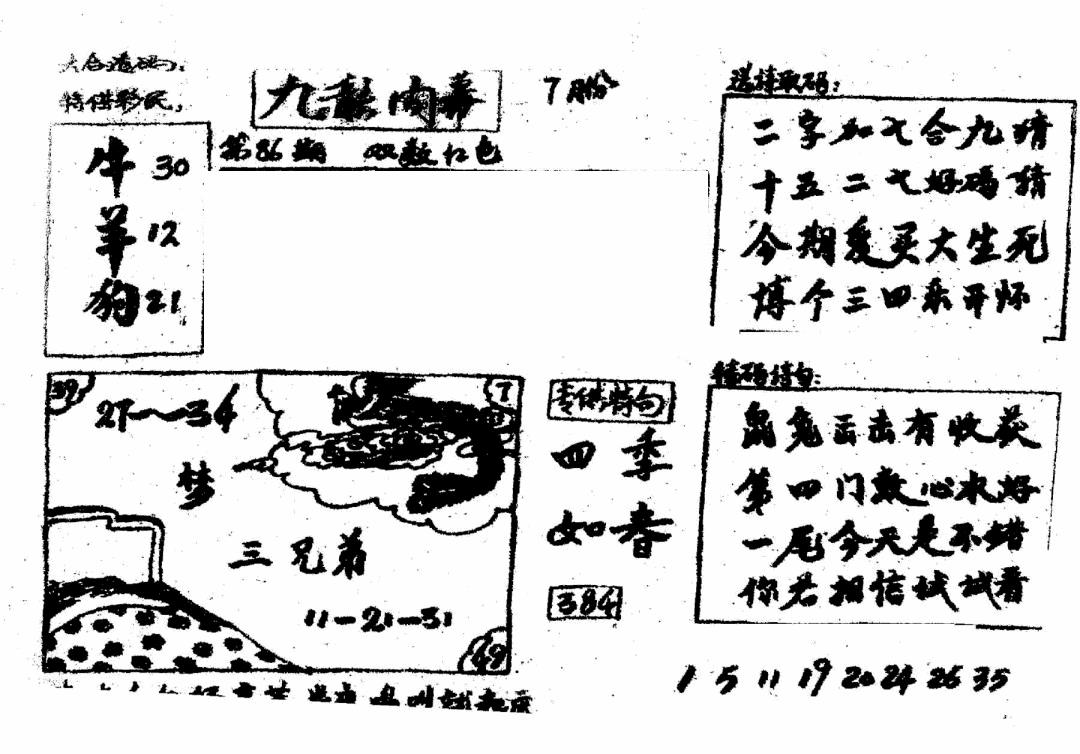 特供彩民,
牛 30
羊 12
狗 21
九龙内幕
7月份
第86期 双数红色
送诗取码:
二字加七合九猜
十五二七好码猜
今期爱买大生死
博个三四乐开怀
39
27～34
7
梦
三兄弟
11-21-31
49
专供特句
四季
如春
384
特码诗句:
鼠兔出击有收获
第四门数心水好
一尾今天是不错
你若相信试试看
1 5 11 19 20 24 26 35